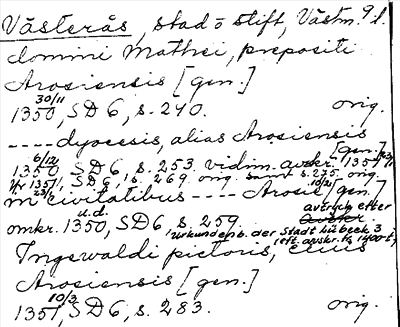 Västerås, stad o stift, Västm. l.
domini Mathei, prepositi
Arosiensis [gen.]
1350 30/11, SD 6, s. 240. orig.
----dyocesis, alias Arosiensis [gen.]
1350 6/12, SD 6, s. 253. vidim. avskr. 1351
1351, SD 6, s. 269. orig. samt s. 275. orig.
m civitatibus ---- Arosie [gen.]
omkr. 1350, u.d. SD 6, s. 259. avtryck efter
Urkundenb. der Stadt Lübeck 3
Ingewaldi pictoris, civis
Arosiensis [gen.]
1351 10/3, SD 6, s. 283. orig.